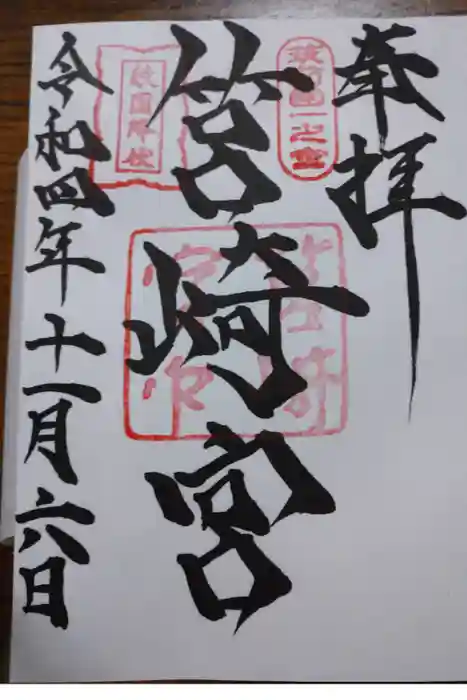 奉拝
筑前國一之宮
筥崎宮
敵國降伏
令和四年十一月六日